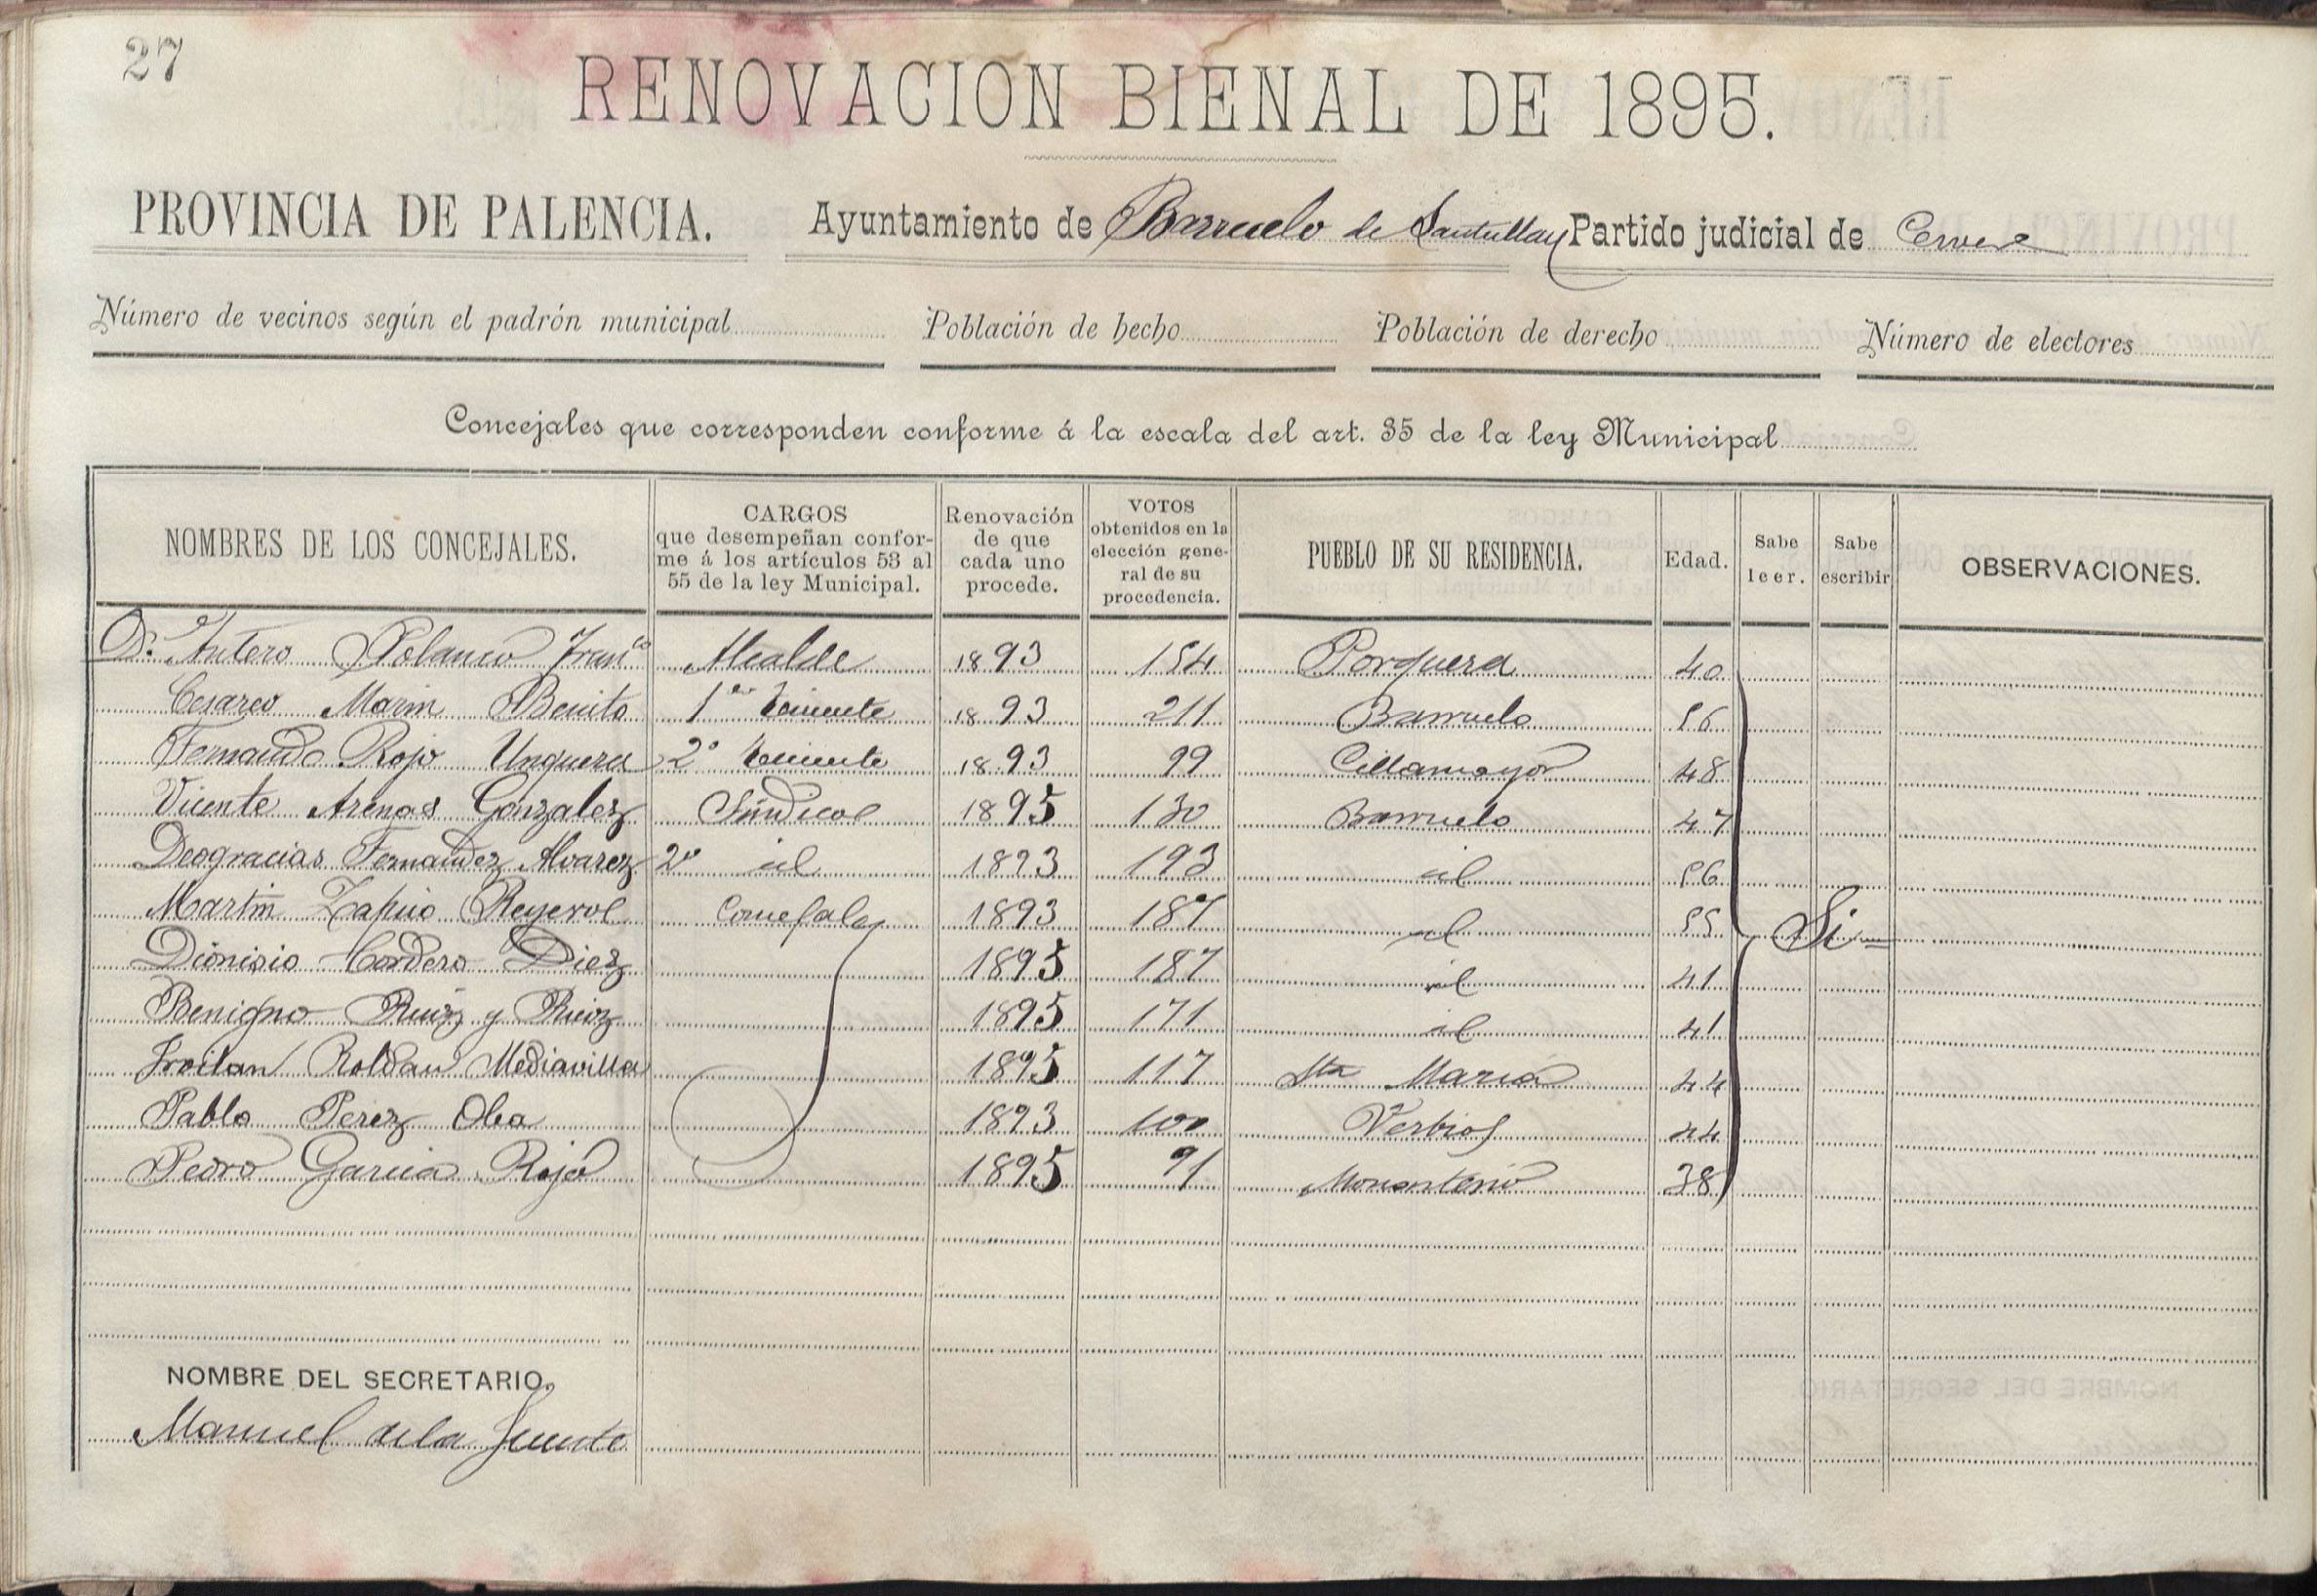 27
RENOVACION BIENAL DE 1895.
PROVINCIA DE PALENCIA. Ayuntamiento de Barruelo de Santullan Partido judicial de Cervera
Número de vecinos según el padrón municipal Población de hecho Población de derecho Número de electores
Concejales que corresponden conforme á la escala del art. 35 de la ley Municipal
NOMBRES DE LOS CONCEJALES. CARGOS que desempeñan confor-me á los artículos 53 al 55 de la ley Municipal. Renovación de que cada uno procede. VOTOS obtenidos en la elección gene-ral de su procedencia. PUEBLO DE SU RESIDENCIA. Edad. Sabe leer. Sabe escribir OBSERVACIONES.
Dn. Antero Polanco Franco Alcalde 1893 154 Porquera 40
Cesareo Marin Benito 1er teniente 1893 211 Barruelo 56
Fernando Rojo Unquera 2º teniente 1893 99 Cillamayor 48
Vicente Arenas Gonzalez Sindicos 1895 130 Barruelo 47
Deogracias Fernandez Alvarez 2º id 1893 193 id 56
Martin Zapico Reyerol Concejales 1893 187 id 55 Si
Dionisio Cordero Diez 1895 187 id 41
Benigno Ruiz y Ruiz 1895 171 id 41
Froilan Roldan Mediavilla 1895 117 Sta Maria 44
Pablo Perez Olea 1893 100 Verbios 44
Pedro Garcia Rojo 1895 91 38
NOMBRE DEL SECRETARIO.
Manuel de la Fuente